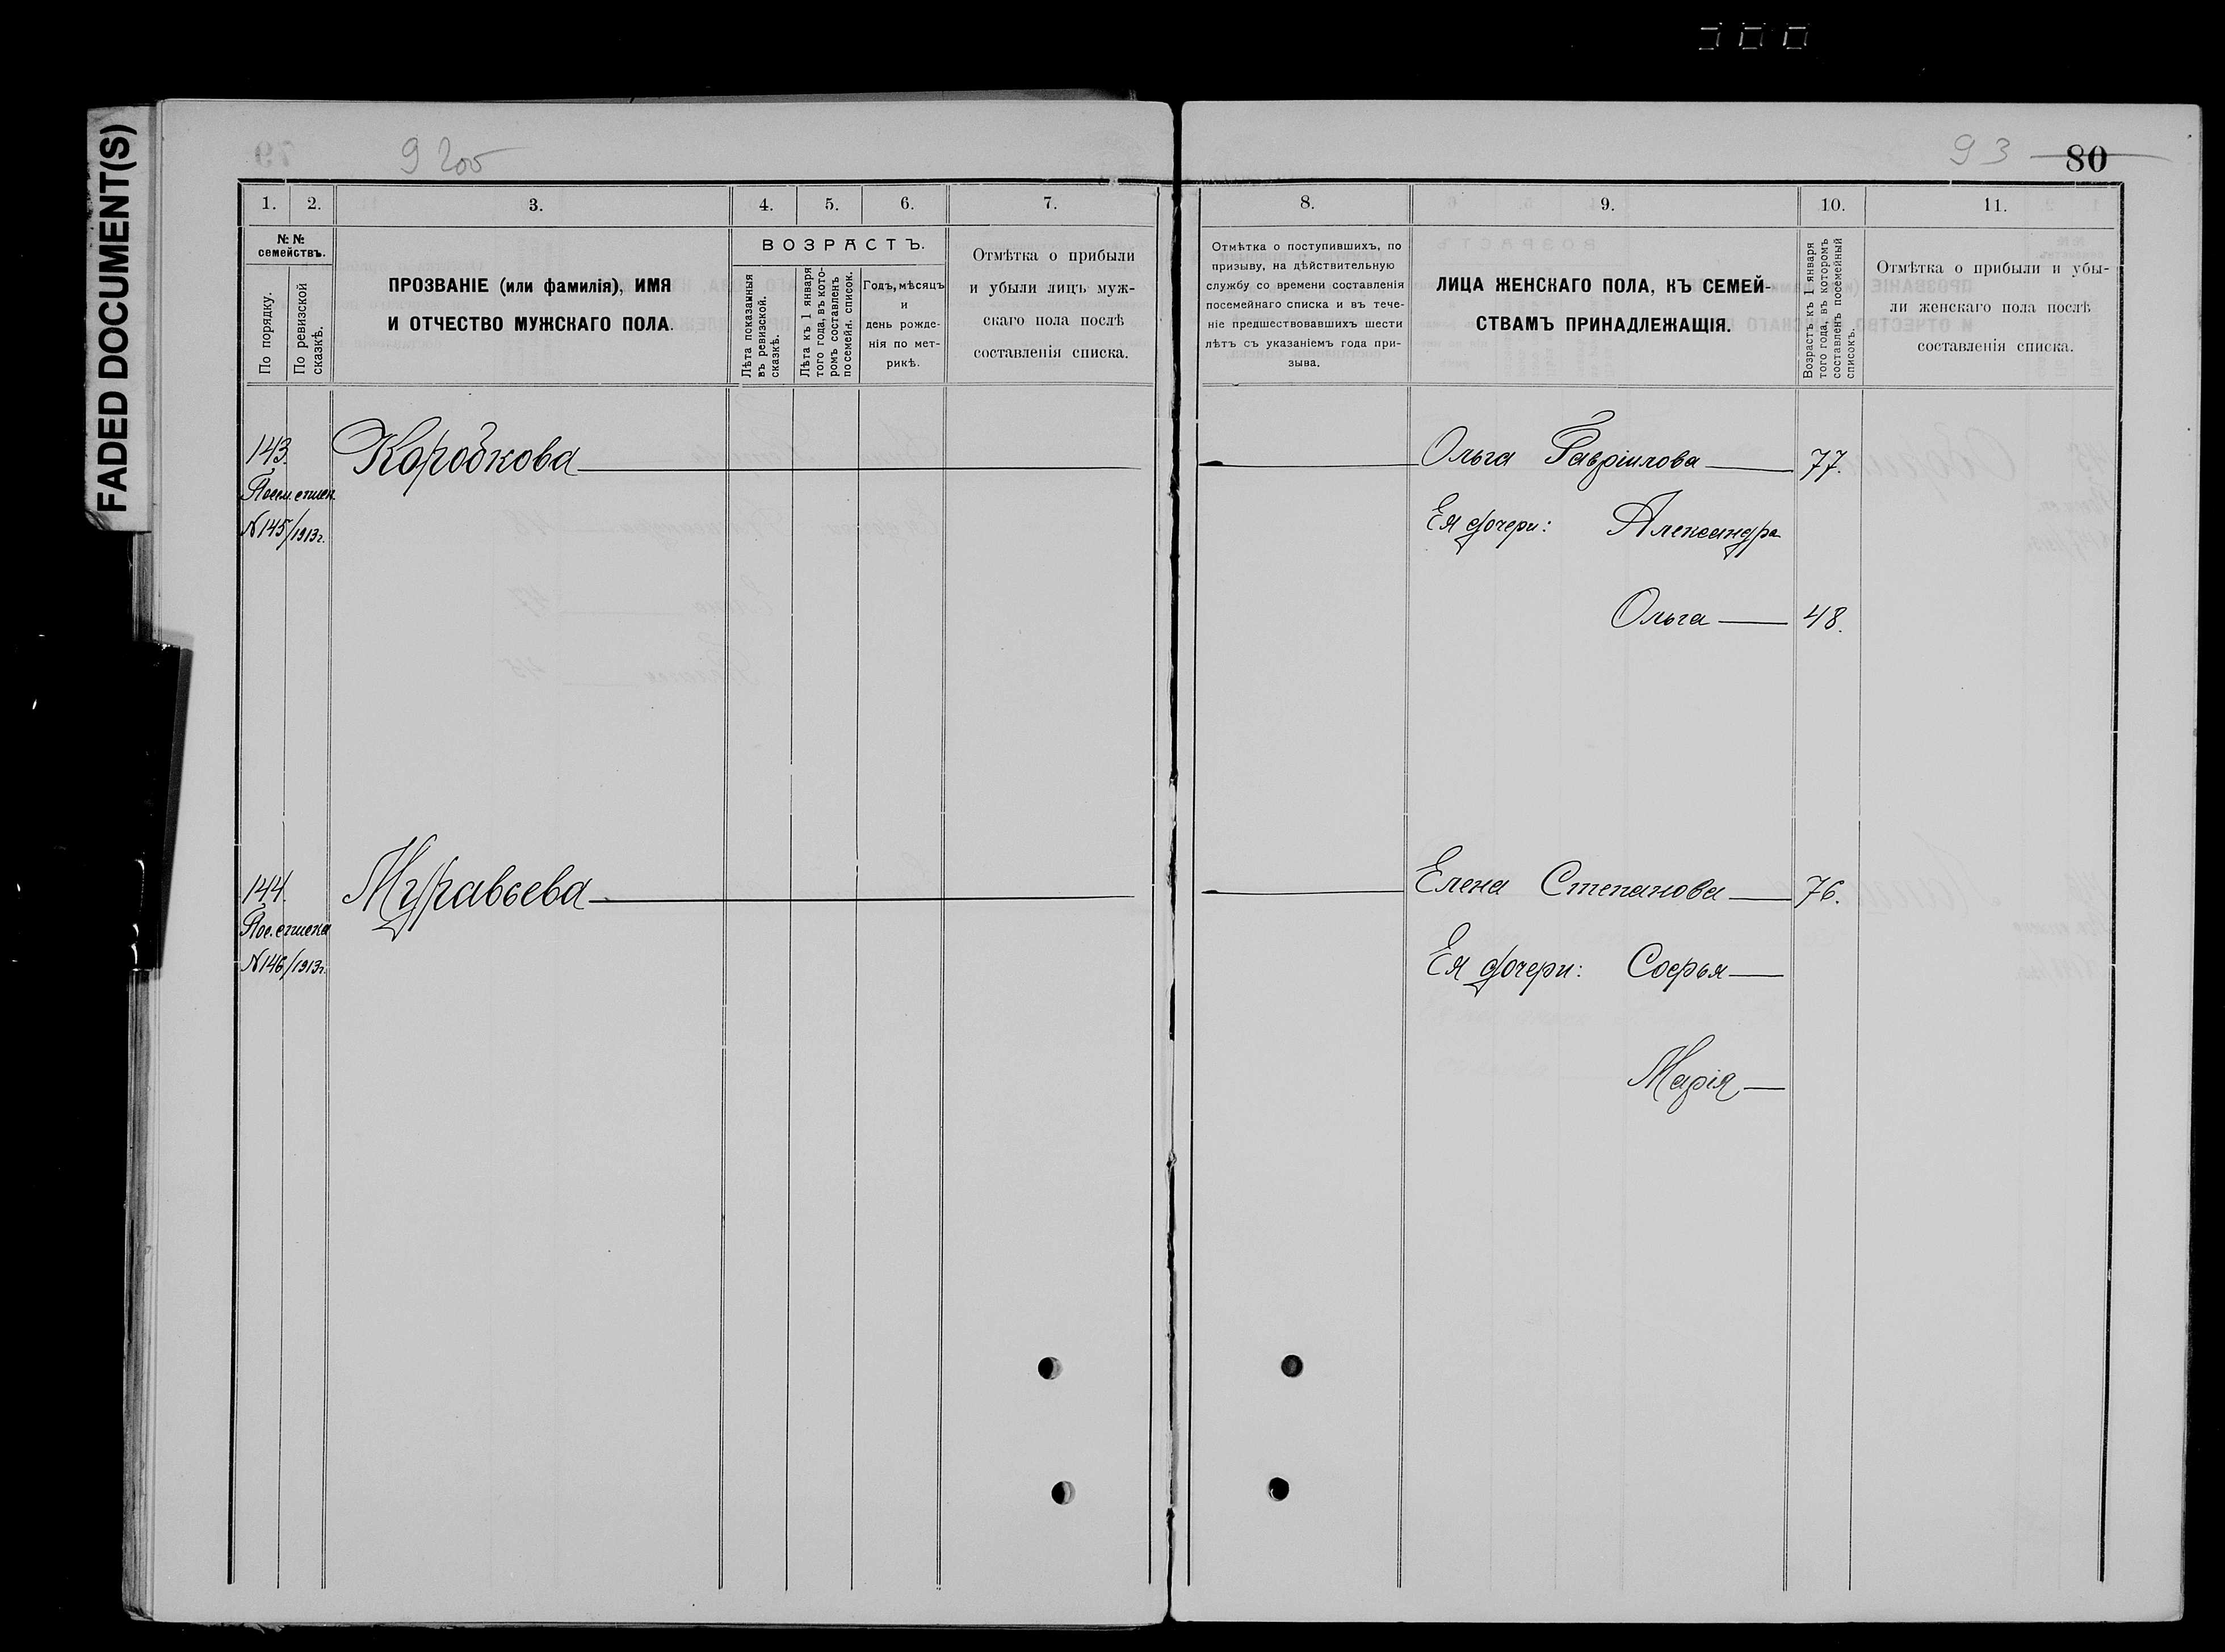 FADED DOCUMENT(S)
93
80
1.
2.
3.
4.
5.
6.
7.
8.
9.
10.
11.
№№
семействъ.
По порядку.
По ревизской
сказкѣ.
ПРОЗВАНІЕ (или фамилія), ИМЯ
И ОТЧЕСТВО МУЖСКАГО ПОЛА.
ВОЗРАСТЪ.
Лѣта показанныя
въ ревизской.
сказкѣ.
Лѣта къ 1 января
того года, въ кото-
ромъ составленъ
посемейн. списокъ.
Годъ, мѣсяцъ
и
день рожде-
нія по мет-
рикѣ.
Отмѣтка о прибыли
и убыли лицъ муж-
скаго пола послѣ
составленія списка.
Отмѣтка о поступившихъ, по
призыву, на дѣйствительную
службу со времени составленія
посемейнаго списка и въ тече-
ніе предшествовавшихъ шести
лѣтъ съ указаніемъ года при-
зыва.
ЛИЦА ЖЕНСКАГО ПОЛА, КЪ СЕМЕЙ-
СТВАМЪ ПРИНАДЛЕЖАЩІЯ.
Возрастъ къ 1 января
того года, въ которомъ
составленъ посемейный
списокъ.
Отмѣтка о прибыли и убы-
ли женскаго пола послѣ
составленія списка.
143. Коробкова Ольга Гавріилова 77.
Посем. списк.
№145/1913г. Ея дочери: Александра
Ольга 48.
144. Муравьева Елена Степанова 76.
Пос. списка
№146/1913г. Ея дочери: Софья
Марія